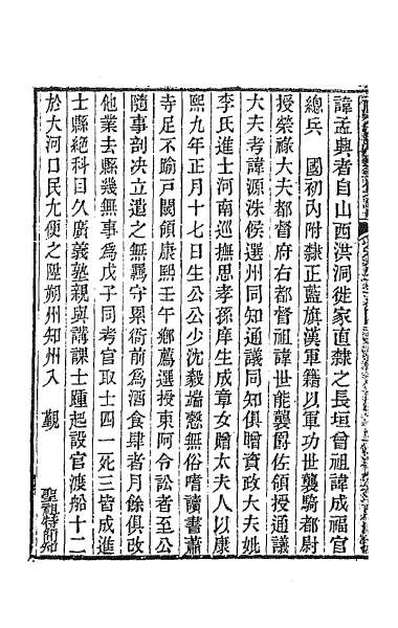 諱孟興者自山西洪洞徙家直隸之長垣曾祖諱成福官
總兵　國初內附隸正藍旗漢軍籍以軍功世襲騎都尉
授榮祿大夫都督府右都督祖諱世能襲爵佐領授通議
大夫考諱源洙候選州同知通議同知俱贈資政大夫妣
李氏進士河南巡撫思孝孫庠生成章女贈太夫人以康
熙九年正月十七日生公公少沈毅端慤無俗嗜讀書蕭
寺足不踰戸閾領康熙壬午鄉薦選授東阿令訟者至公
隨事剖决立遣之無羈守累衙前爲酒食肆者月餘俱改
他業去縣幾無事爲戊子同考官取士四一死三皆成進
士縣絕科目久廣義塾親與講課士踵起設官渡船十二
於大河口民尤便之陞朔州知州入　覲　聖祖特